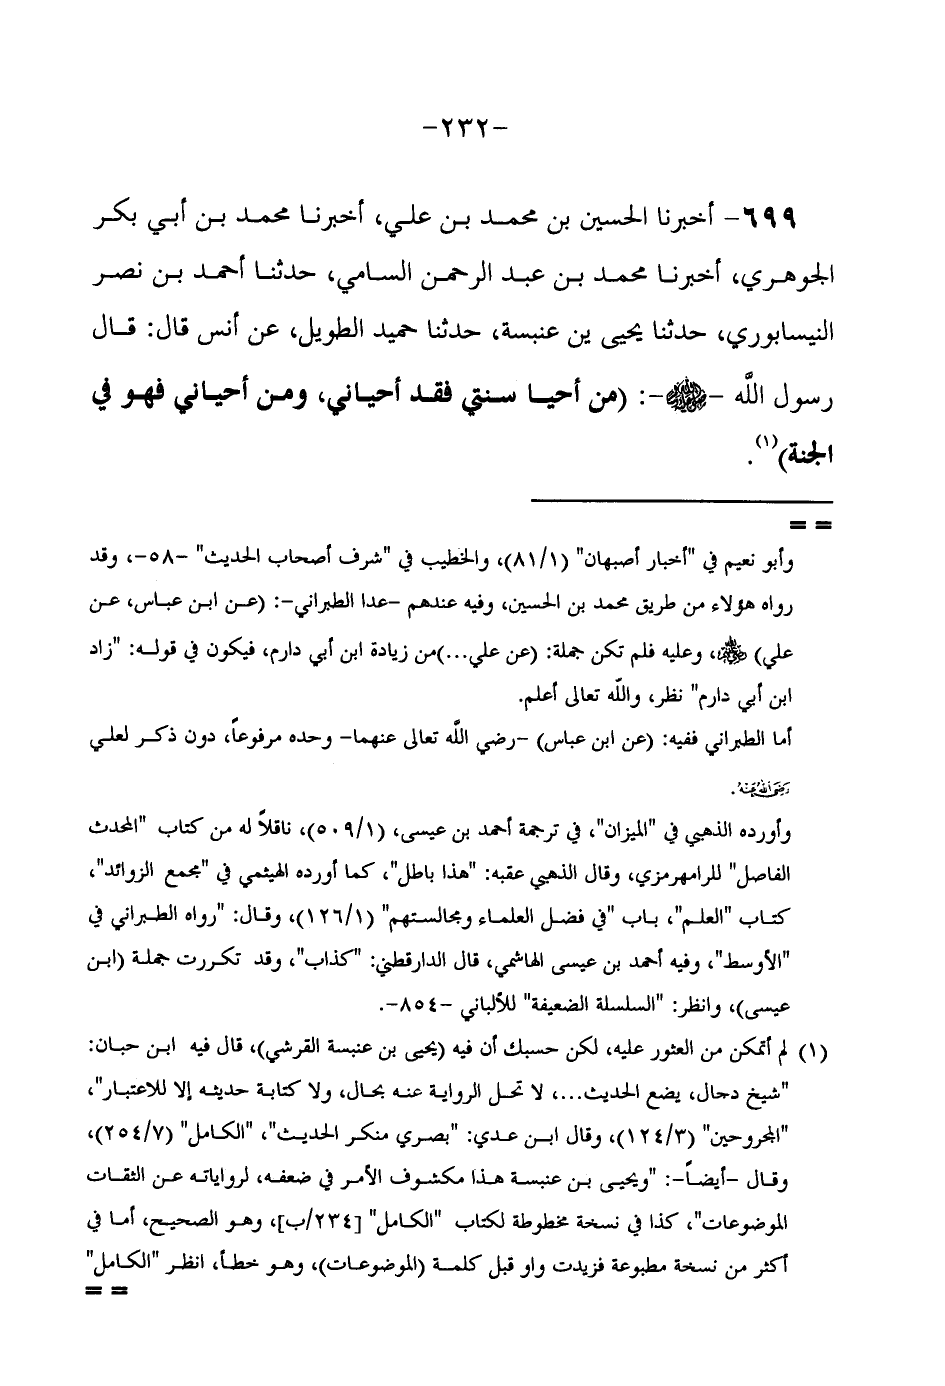 -٢٣٢-
٦٩٩- أخبرنا الحسين بن محمد بن علي، أخبرنا محمد بن أبي بكر
الجوهري، أخبرنا محمد بن عبد الرحمن السامي، حدثنا أحمد بن نصر
النيسابوري، حدثنا يحيى ين عنبسة، حدثنا حميد الطويل، عن أنس قال: قال
رسول اللَّه -ﷺ-: (من أحيا سنتي فقد أحياني، ومن أحياني فهو في
الجنة)(١).
= =
وأبو نعيم في "أخبار أصبهان" (٨١/١)، والخطيب في "شرف أصحاب الحديث" -٥٨-، وقد
رواه هؤلاء من طريق محمد بن الحسين، وفيه عندهم -عدا الطبراني-: (عن ابن عباس، عن
علي) ﷺ، وعليه فلم تكن جملة: (عن علي...)من زيادة ابن أبي دارم، فيكون في قوله: "زاد
ابن أبي دارم" نظر، واللَّه تعالى أعلم.
أما الطبراني ففيه: (عن ابن عباس) -رضي اللَّه تعالى عنهما- وحده مرفوعاً، دون ذكر لعلي
رضي الله عنه.
وأورده الذهبي في "الميزان"، في ترجمة أحمد بن عيسى، (٥٠٩/١)، ناقلاً له من كتاب "المحدث
الفاصل" للرامهرمزي، وقال الذهبي عقبه: "هذا باطل"، كما أورده الهيثمي في "مجمع الزوائد"،
كتاب "العلم"، باب "في فضل العلماء ومجالستهم" (١٢٦/١)، وقال: "رواه الطبراني في
"الأوسط"، وفيه أحمد بن عيسى الهاشمي، قال الدارقطني: "كذاب"، وقد تكررت جملة (ابن
عيسى)، وانظر: "السلسلة الضعيفة" للألباني -٨٥٤-.
(١) لم أتمكن من العثور عليه، لكن حسبك أن فيه (يحيى بن عنبسة القرشي)، قال فيه ابن حبان:
"شيخ دجال، يضع الحديث...، لا تحل الرواية عنه بحال، ولا كتابة حديثه إلا للاعتبار"،
"المجروحين" (١٢٤/٣)، وقال ابن عدي: "بصري منكر الحديث"، "الكامل" (٢٥٤/٧)،
وقال -أيضاً-: "ويحيى بن عنبسة هذا مكشوف الأمر في ضعفه، لرواياته عن الثقات
الموضوعات"، كذا في نسخة مخطوطة لكتاب "الكامل" [٢٣٤/ب]، وهو الصحيح، أما في
أكثر من نسخة مطبوعة فزيدت واو قبل كلمة (الموضوعات)، وهو خطأ، انظر "الكامل"
= =